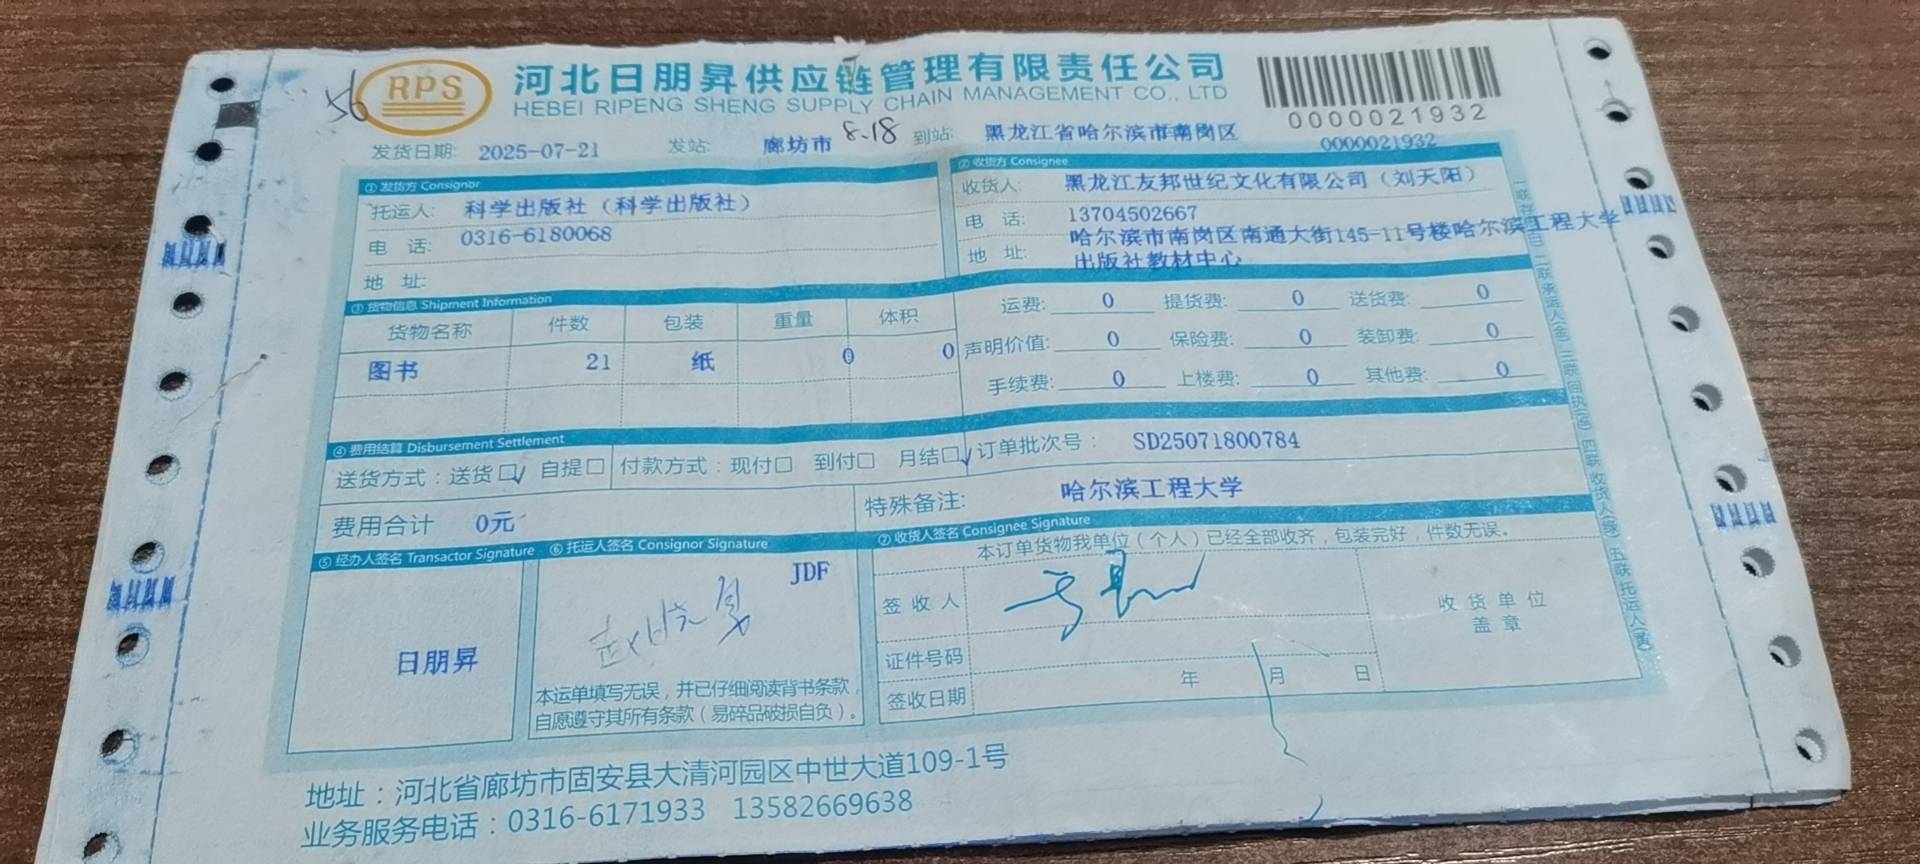 56
RPS
河北日朋昇供应链管理有限责任公司
HEBEI RIPENG SHENG SUPPLY CHAIN MANAGEMENT CO., LTD
0000021932
发货日期: 2025-07-21 发站: 廊坊市 8.18 到站: 黑龙江省哈尔滨市南岗区 0000021932
① 发货方 Consignor
托运人: 科学出版社（科学出版社）
电 话: 0316-6180068
地 址:
② 收货方 Consignee
收货人: 黑龙江友邦世纪文化有限公司（刘天阳）
电 话: 13704502667
地 址: 哈尔滨市南岗区南通大街145-11号楼哈尔滨工程大学
出版社教材中心
③ 货物信息 Shipment Information
货物名称 件数 包装 重量 体积
图书 21 纸 0 0
运费: 0 提货费: 0 送货费: 0
声明价值: 0 保险费: 0 装卸费: 0
手续费: 0 上楼费: 0 其他费: 0
④ 费用结算 Disbursement Settlement
送货方式：送货□√ 自提□ 付款方式：现付□ 到付□ 月结□√ 订单批次号： SD25071800784
费用合计 0元
特殊备注: 哈尔滨工程大学
⑤ 经办人签名 Transactor Signature
日朋昇
⑥ 托运人签名 Consignor Signature
JDF
本运单填写无误，并已仔细阅读背书条款，
自愿遵守其所有条款（易碎品破损自负）。
⑦ 收货人签名 Consignee Signature
本订单货物我单位（个人）已经全部收齐，包装完好，件数无误。
签 收 人
证件号码
签收日期 年 月 日
收 货 单 位
盖 章
地址：河北省廊坊市固安县大清河园区中世大道109-1号
业务服务电话：0316-6171933 13582669638